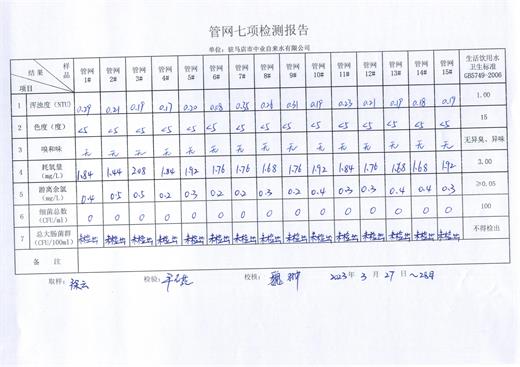 管网七项检测报告
单位：驻马店市中业自来水有限公司
样品 结果 项目 管网1# 管网2# 管网3# 管网4# 管网5# 管网6# 管网7# 管网8# 管网9# 管网10# 管网11# 管网12# 管网13# 管网14# 管网15# 生活饮用水卫生标准GB5749-2006
1 浑浊度（NTU） 0.29 0.21 0.19 0.17 0.20 0.18 0.35 0.31 0.19 0.23 0.21 0.19 0.18 0.19 1.00
2 色度（度） <5 <5 <5 <5 <5 <5 <5 <5 <5 <5 <5 <5 <5 <5 <5 15
3 嗅和味 无 无 无 无 无 无 无 无 无 无 无 无 无 无 无 无异臭、异味
4 耗氧量（mg/L） 1.84 1.44 2.08 1.84 1.92 1.76 1.76 1.68 1.76 1.92 1.84 1.76 1.68 1.68 1.92 3.00
5 游离余氯（mg/L） 0.4 0.5 0.5 0.2 0.3 0.2 0.2 0.3 0.2 0.2 0.3 0.3 0.4 0.4 0.3 ≥0.05
6 细菌总数（CFU/ml） 0 0 0 0 0 0 0 0 0 0 0 0 0 0 0 100
7 总大肠菌群（CFU/100ml） 未检出 未检出 未检出 未检出 未检出 未检出 未检出 未检出 未检出 未检出 未检出 未检出 未检出 未检出 未检出 不得检出
备 注
取样： 检验： 校核： 2023年3月27日～28日